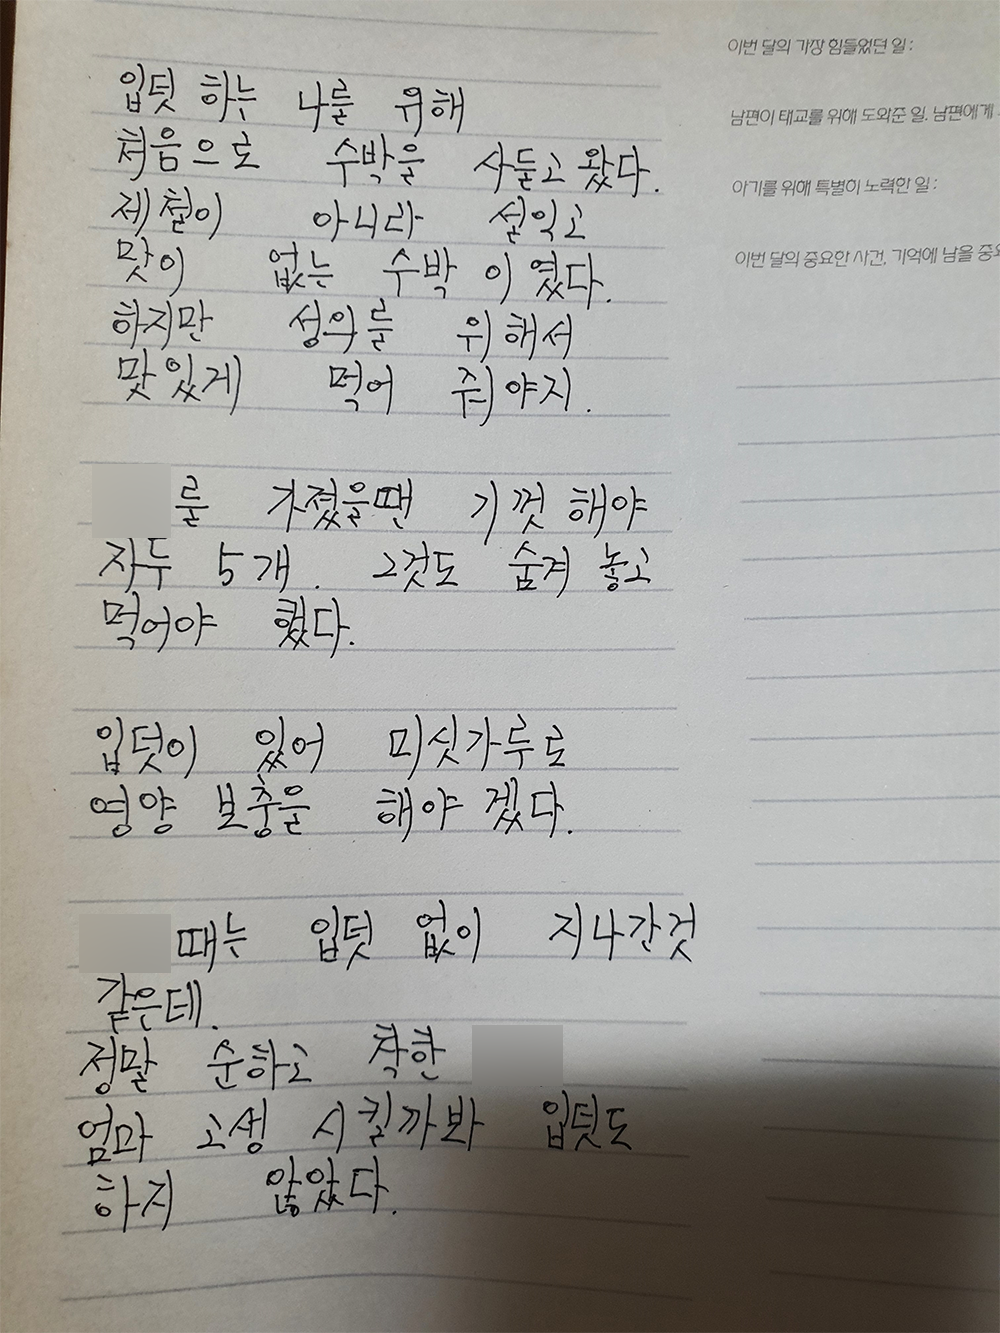 입덧 하는 나를 위해
처음으로 수박을 사들고 왔다.
제철이 아니라 설익고
맛이 없는 수박 이였다.
하지만 성의를 위해서
맛있게 먹어 줘야지.
를 가졌을땐 기껏 해야
자두 5개. 그것도 숨겨 놓고
먹어야 했다.
입덧이 있어 미싯가루로
영양 보충을 해야 겠다.
때는 입덧 없이 지나간것
같은데.
정말 순하고 착한
엄마 고생 시킬까봐 입덧도
하지 않았다.
이번 달의 가장 힘들었던 일:
남편이 태교를 위해 도와준 일. 남편에게
아기를 위해 특별히 노력한 일:
이번 달의 중요한 사건, 기억에 남을